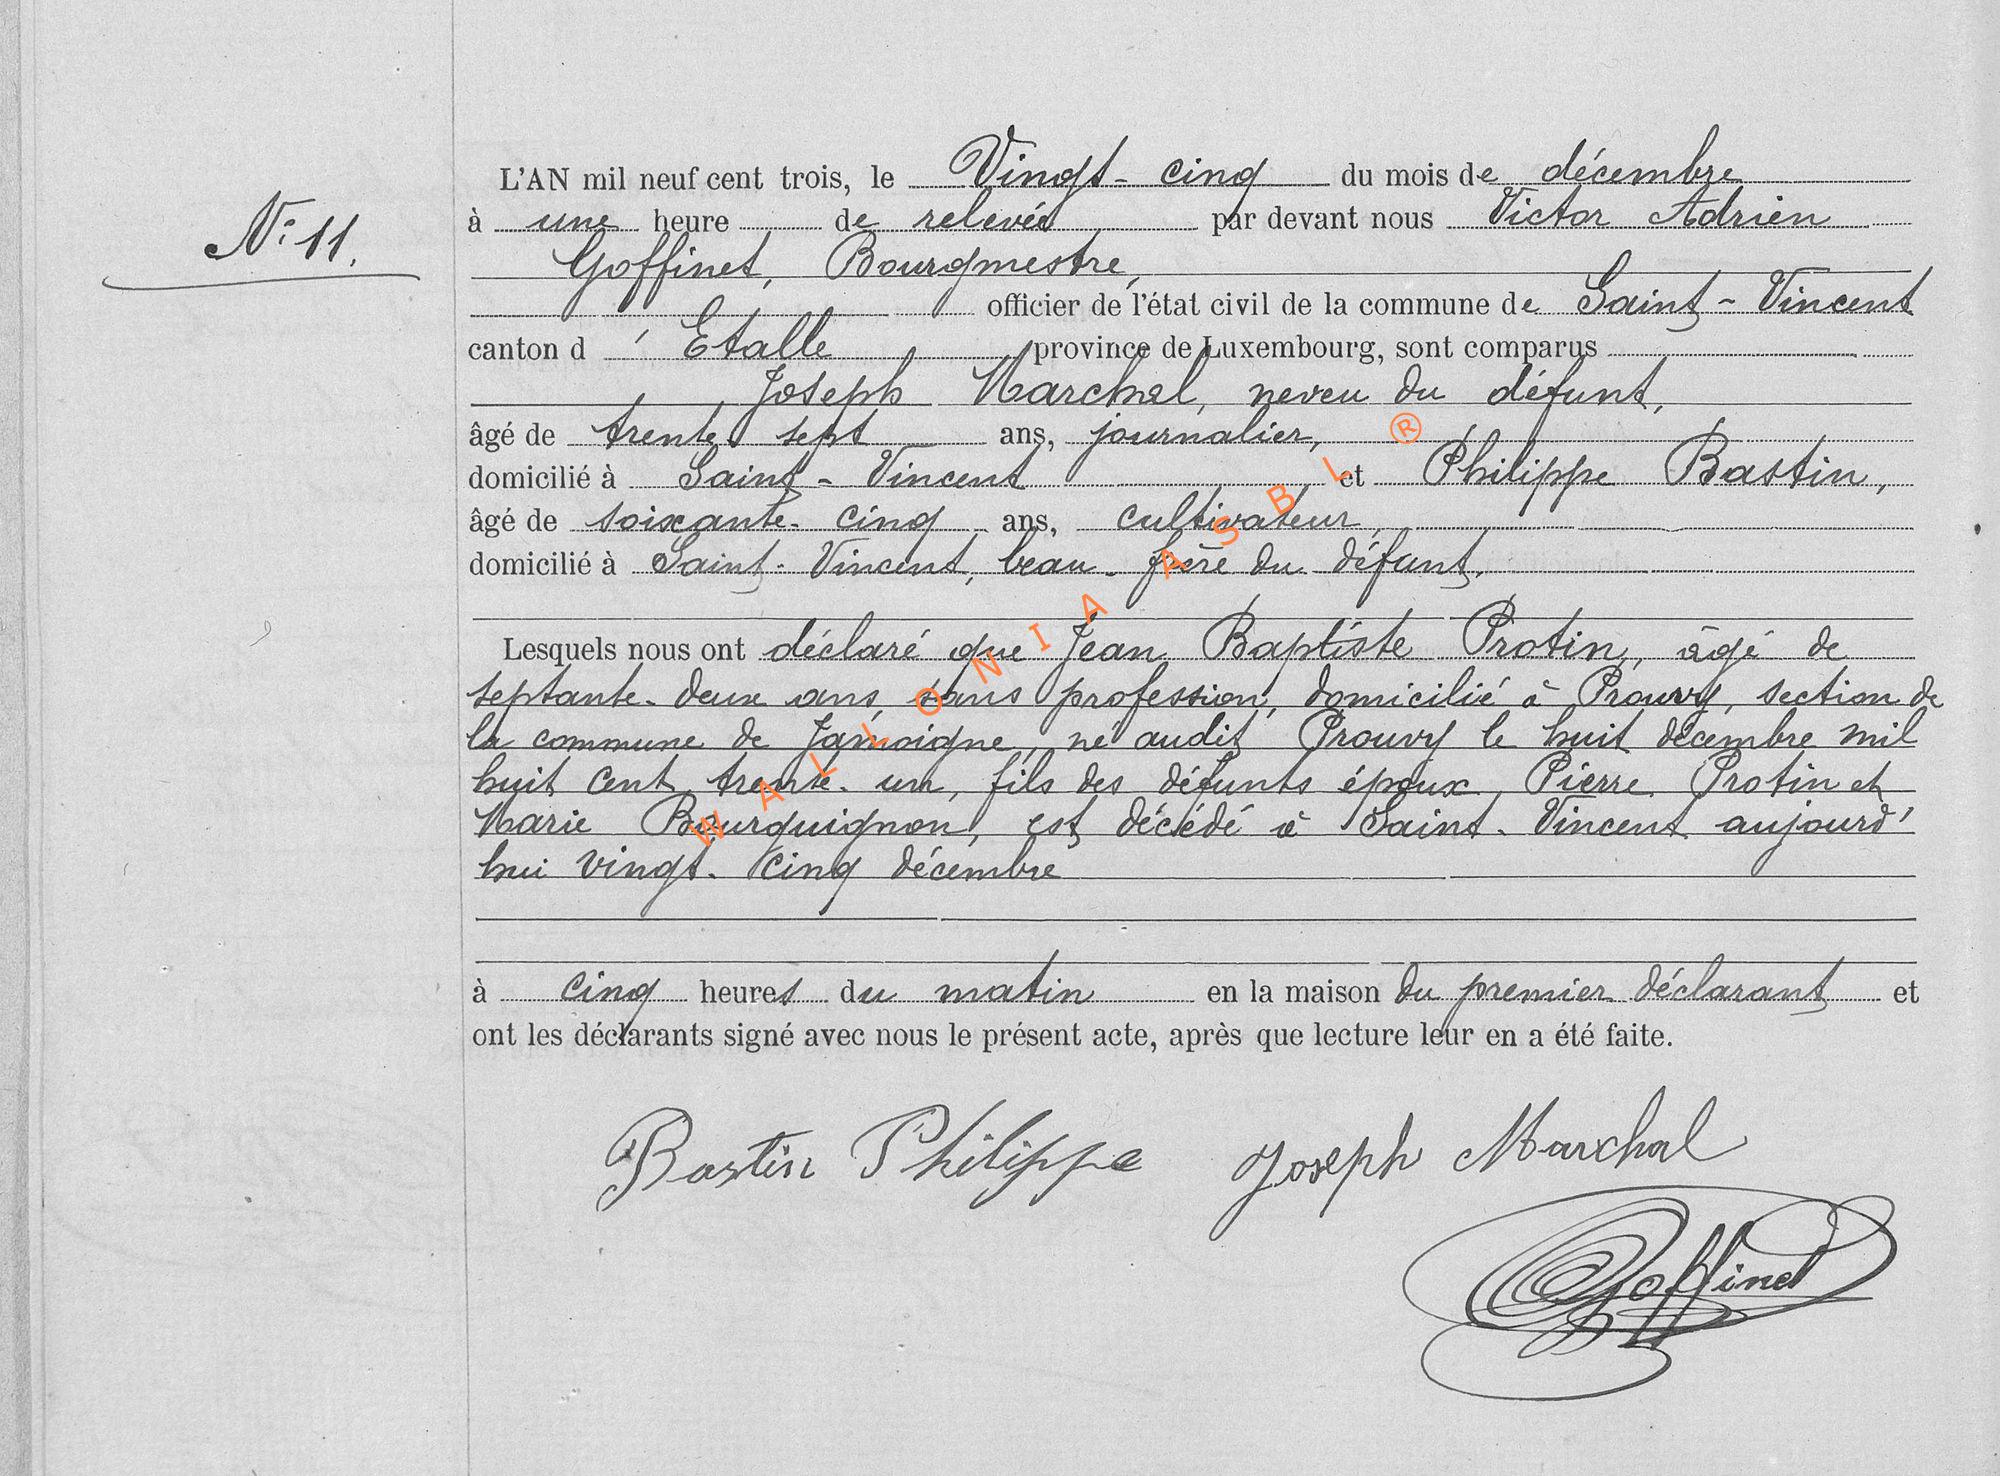 N° 11.
L'AN mil neuf cent trois, le Vingt-cinq du mois de décembre
à une heure de relevée par devant nous Victor Adrien
Goffinet, Bourgmestre,
officier de l'état civil de la commune de Saint-Vincent
canton d'Etalle province de Luxembourg, sont comparus
Joseph Marchal, neveu du défunt,
âgé de trente-sept ans, journalier,
domicilié à Saint-Vincent et Philippe Bastin,
âgé de soixante-cinq ans, cultivateur,
domicilié à Saint-Vincent, beau-frère du défunt.
Lesquels nous ont déclaré que Jean Baptiste Protin, âgé de
septante-deux ans, sans profession, domicilié à Prouvy, section de
la commune de Jamoigne, né audit Prouvy le huit décembre mil
huit cent trente-un, fils des défunts époux Pierre Protin et
Marie Bourguignon, est décédé à Saint-Vincent aujourd'
hui vingt-cinq décembre
à cinq heures du matin en la maison du premier déclarant et
ont les déclarants signé avec nous le présent acte, après que lecture leur en a été faite.
Bastin Philippe Joseph Marchal
Goffinet
WALLONIA ASBL ®